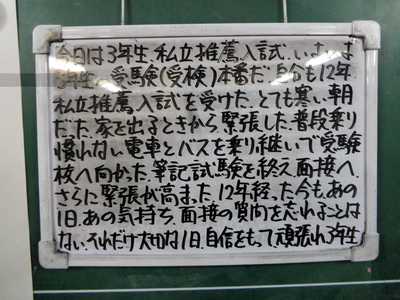 今日は3年生 私立推薦入試.いよいよ
3年生 受験(受検)本番だ.自分も12年
私立推薦入試を受けた.とても寒い朝
だった.家を出るときから緊張した.普段乗り
慣れない電車とバスを乗り継いで受験
校へ向かった.筆記試験を終え.面接へ.
さらに緊張が高まった.12年経った今も.あの
1日.あの気持ち.面接の質問を忘れることは
ない.それだけ大切な1日.自信をもって頑張れ3年生